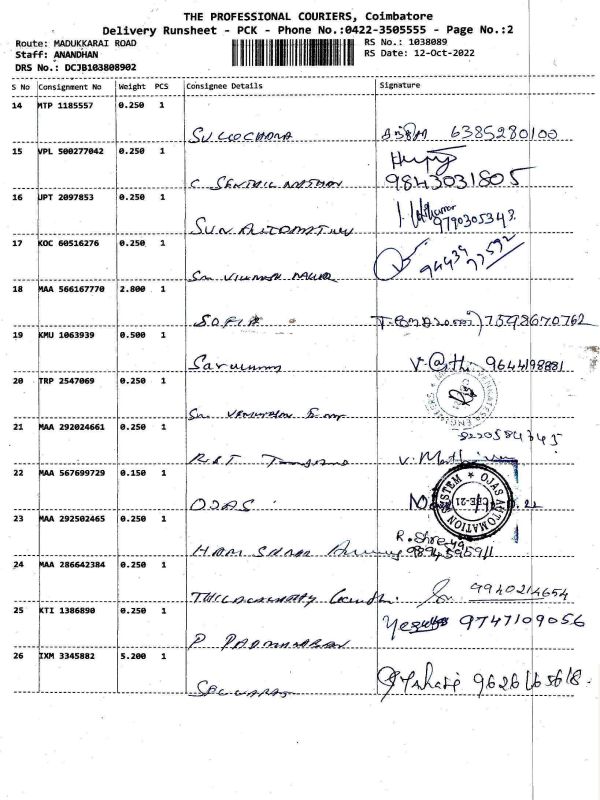 THE PROFESSIONAL COURIERS, Coimbatore
Delivery Runsheet - PCK - Phone No.:0422-3505555 - Page No.:2
Route: MADUKKARAI ROAD
RS No.: 1038089
Staff: ANANDHAN
RS Date: 12-Oct-2022
DRS No.: DCJB103808902
S No Consignment No Weight PCS Consignee Details Signature
14 MTP 1185557 0.250 1
SULOCHANA 6385280100
15 VPL 500277042 0.250 1
C. SENTHIL NATHAN 9843031805
16 JPT 2097853 0.250 1
SUN AUTOMATION 9790305343
17 KOC 60516276 0.250 1
Sri 94439 77592
18 MAA 566167770 2.800 1
SOFIA 7598670762
19 KMU 1063939 0.500 1
Saravanan 9644198881
20 TRP 2547069 0.250 1
Sri
21 MAA 292024661 0.250 1
8220584345
22 MAA 567699729 0.150 1
OJAS
OJAS AUTOMATION SYSTEM
CBE-21
23 MAA 292502465 0.250 1
HARI R. Shreya
9894595911
24 MAA 286642384 0.250 1
Gandhi. 9940214654
25 KTI 1386890 0.250 1
P PADMANABAN 9747109056
26 IXM 3345882 5.200 1
SELVARAJ 9626165618.